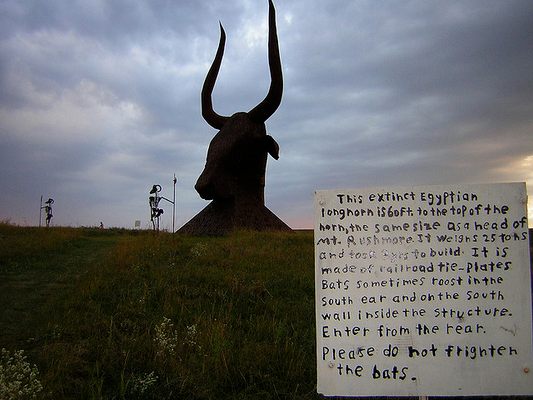 This extinct Egyptian
longhorn is 60ft. to the top of the
horn, the same size as a head of
Mt. Rushmore. It weighs 25 tons
and took to build. It is
made of railroad tie-plates
Bats sometimes roost in the
south ear and on the south
wall inside the structure.
Enter from the rear.
Please do not frighten
the bats.